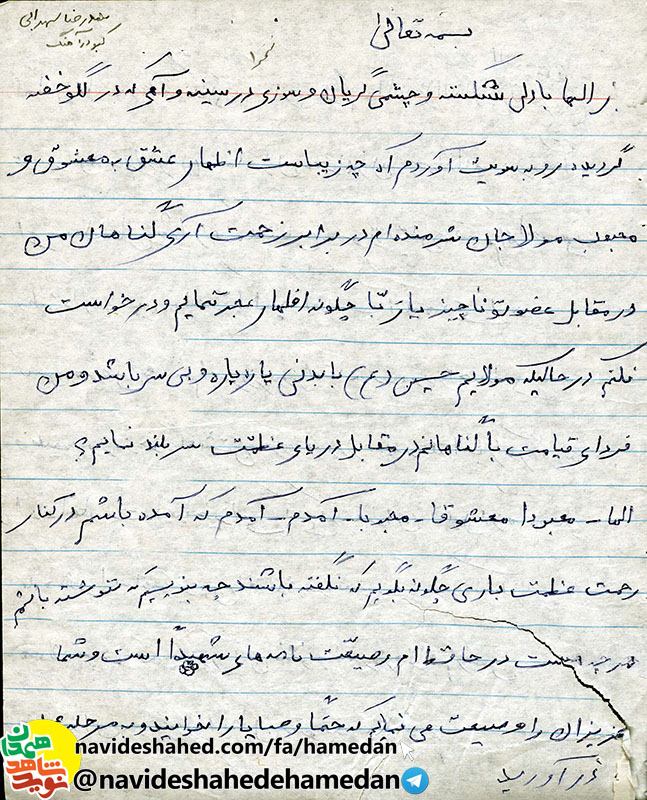 بسمه تعالی
محمدرضا سهرابی
کبودرآهنگ
الها با دلی شکسته و چشمی گریان و سوزی در سینه و آهی که در گلو خفته
گردیده رو به سویت آوردم که چه زیباست اظهار عشق به معشوق و
محبوب مولا جان شرمنده ام در برابر رحمت آری گناهان من
در مقابل عفو تو ناچیز یا ربّا چگونه اظهار عجز ننمایم و درخواست
نکنم در حالیکه مولایم حسین (ع) با بدنی پاره پاره و بی سر باشد و من
فردای قیامت با گناهانم در مقابل دریای عظمّت سر بلند نمایم؟
الها - معبودا معشوقا - محبوبا - آمدم - آمدم که آمده باشم در کنار
رحمت عظمت باری چگونه بگویم که نگفته باشند چه بنویسم که ننوشته باشم
هر چه هست در حافظه ام وصیّت نامه های شهیدا است و شما
عزیزان را وصیت می نمایم که حتماً وصایا را بخوانید و به مرحله
در آورید
navideshahed.com/fa/hamedan
@navideshahedehamedan
نوید شاهد همدان